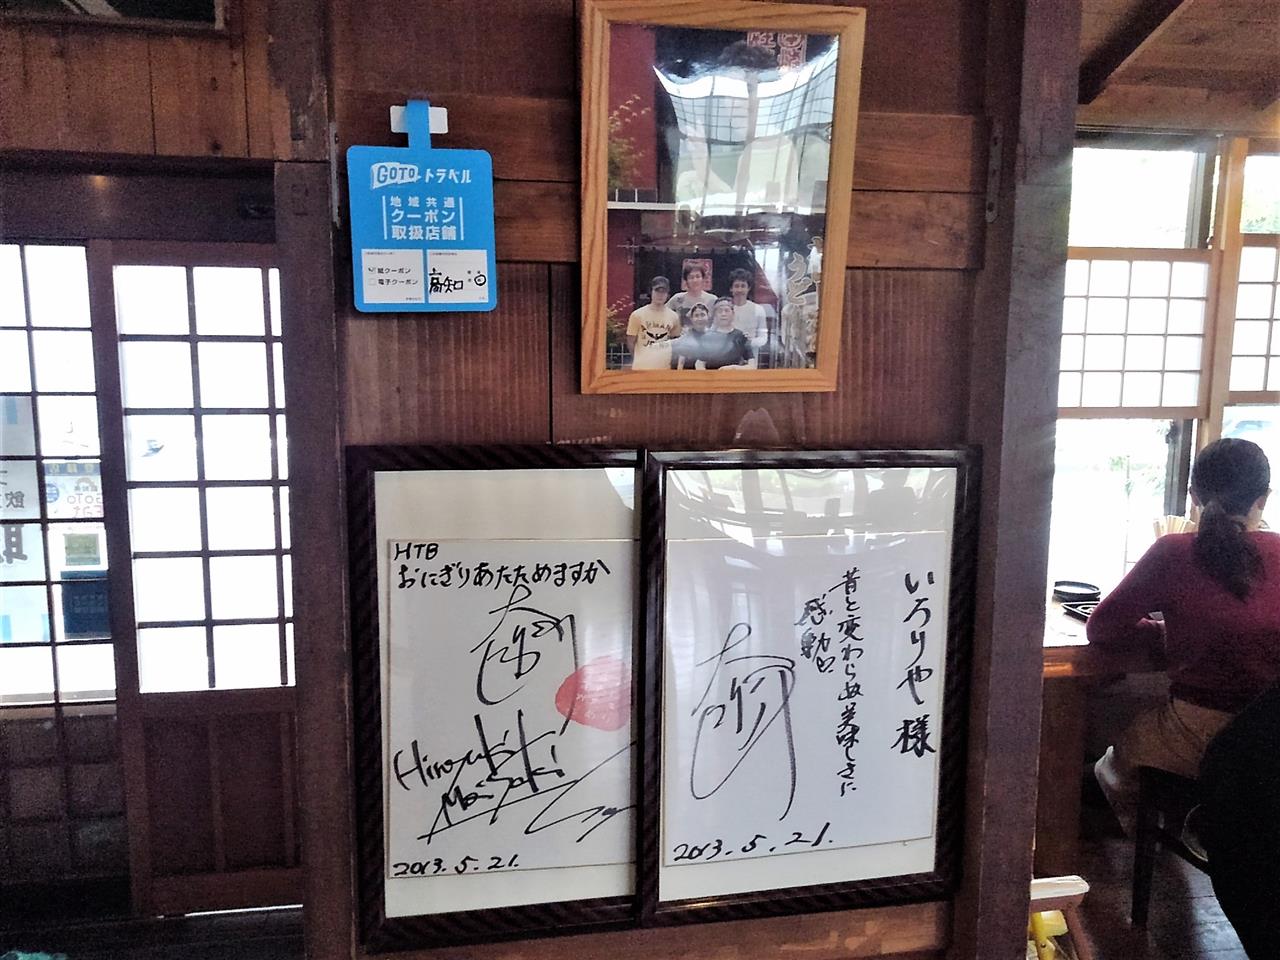 GOTO トラベル
地域共通
クーポン
取扱店舗
紙クーポン
電子クーポン
高知
HTB
おにぎりあたためますか
Hiroyuki
Morisaki
2013.5.21.
いろりや様
昔と変わらぬ美味しさに
感動!!
2013.5.21.
GoTo
Eat
飲